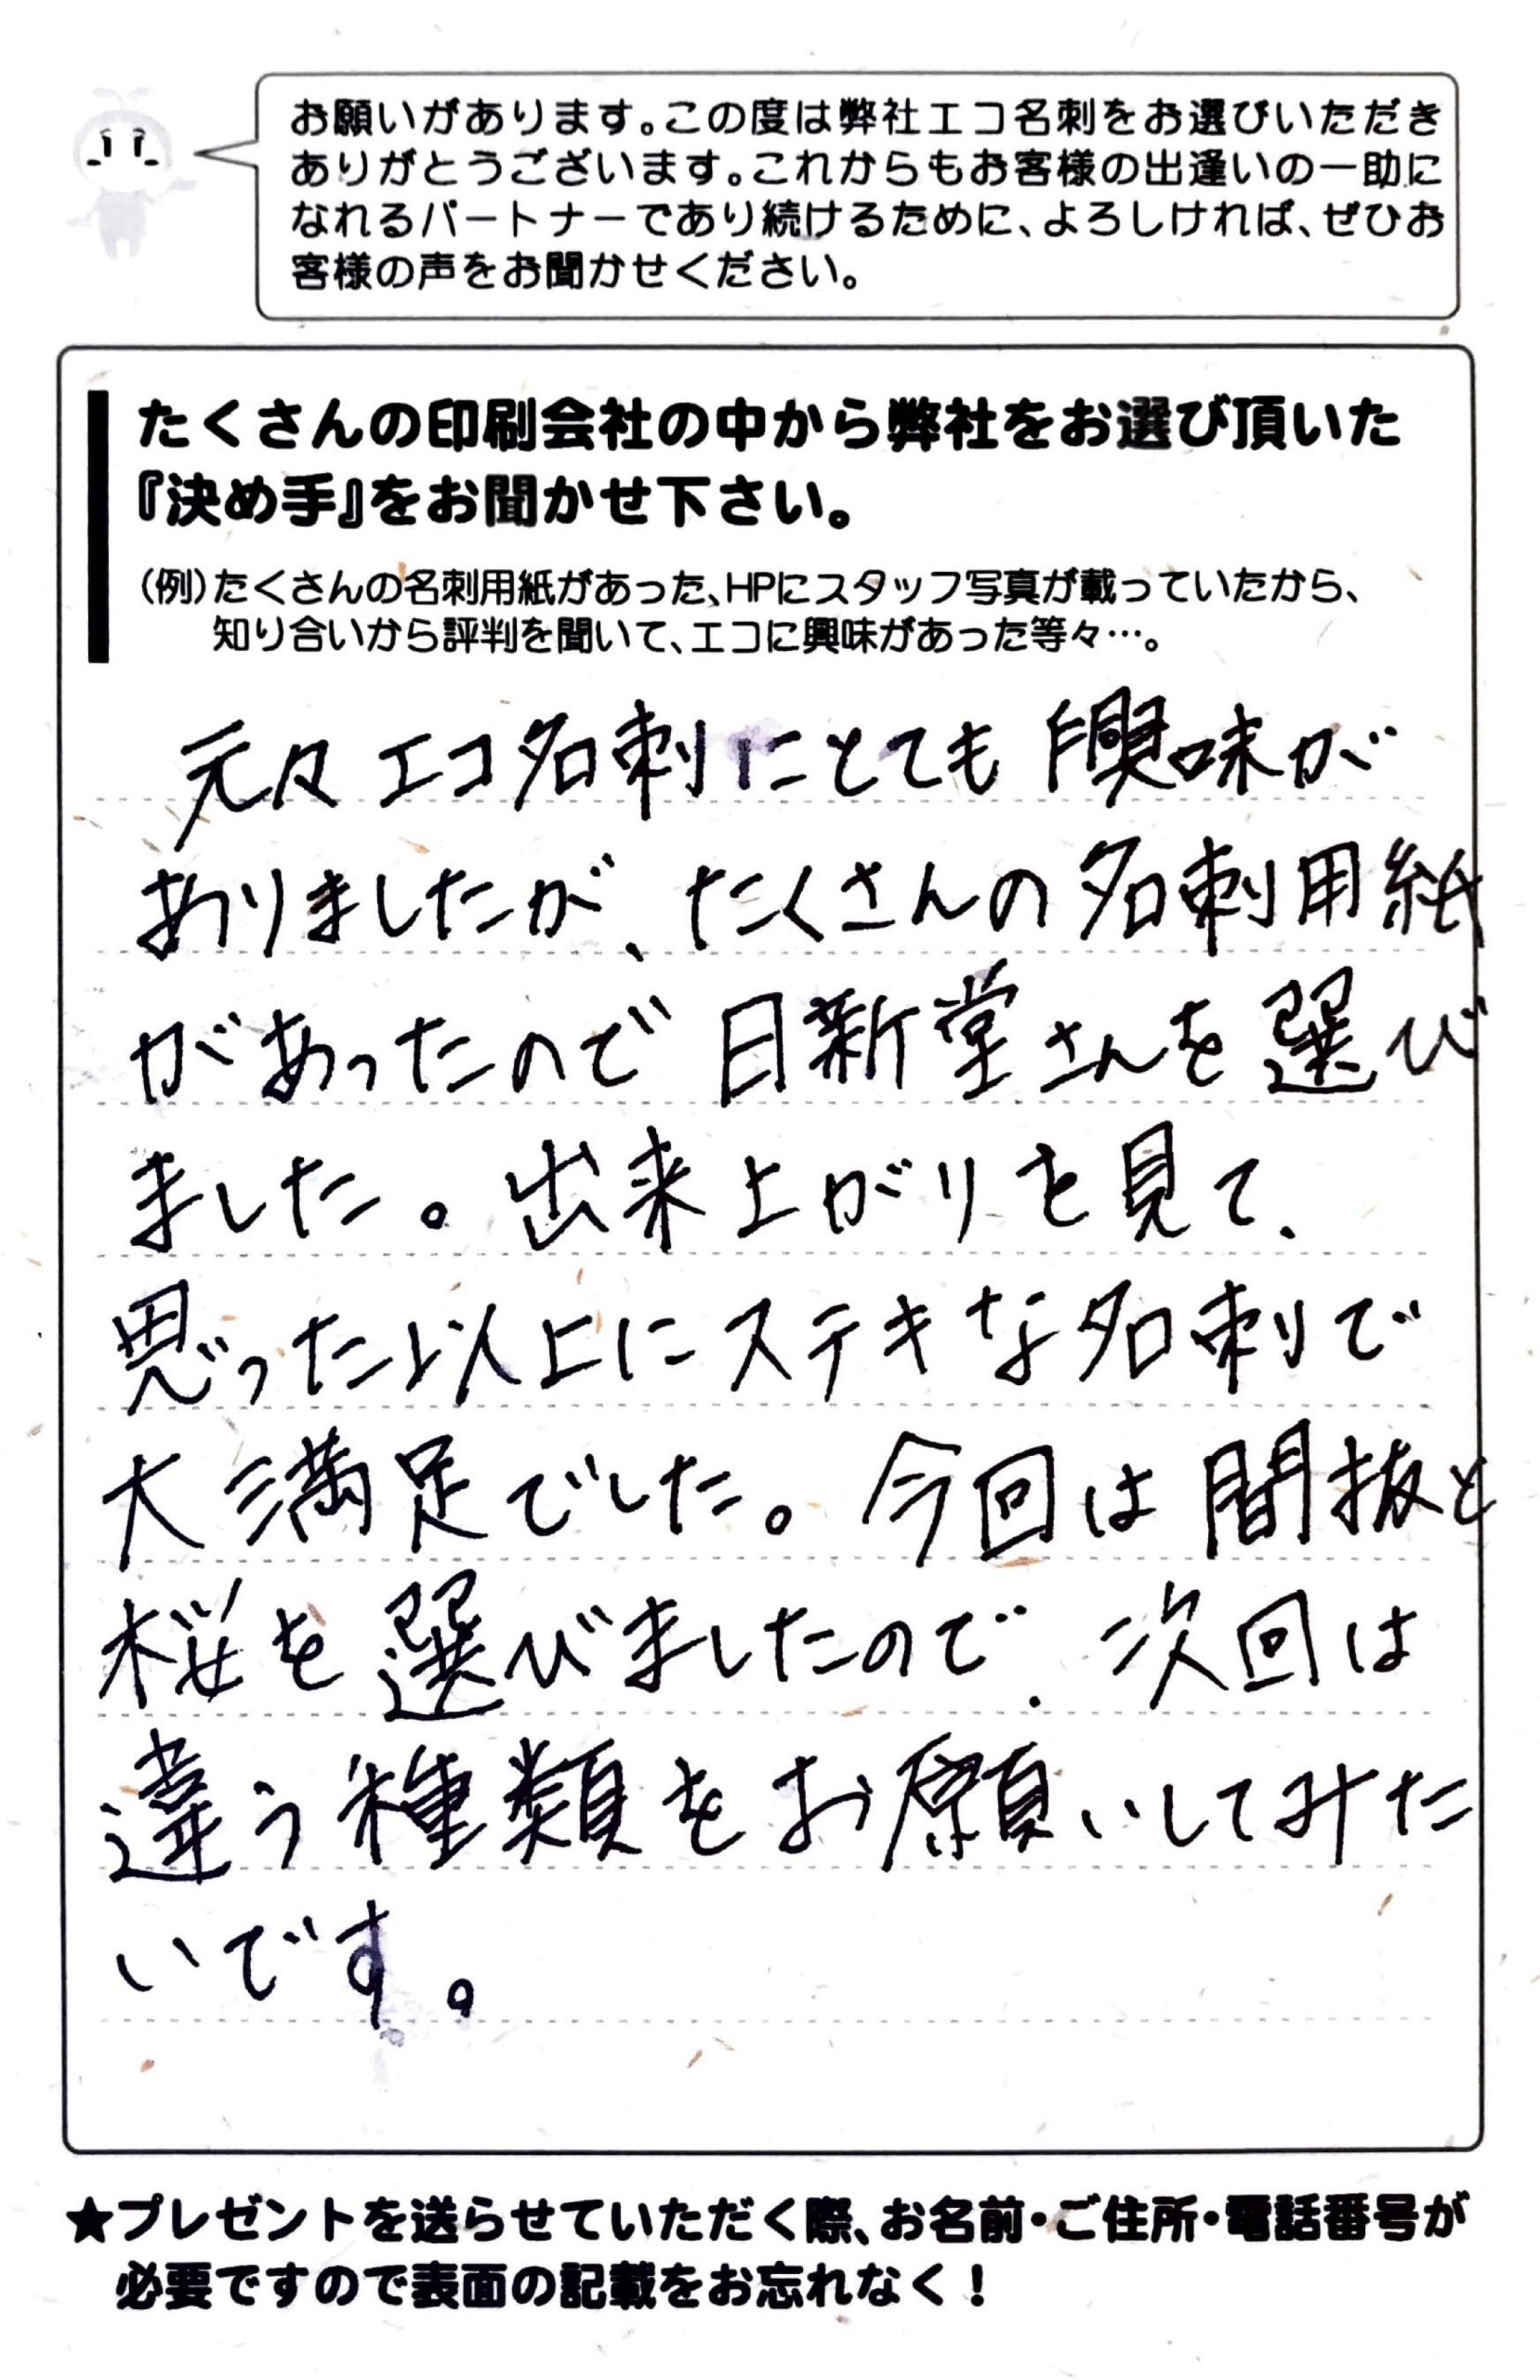 お願いがあります。この度は弊社エコ名刺をお選びいただき
ありがとうございます。これからもお客様の出逢いの一助に
なれるパートナーであり続けるために、よろしければ、ぜひお
客様の声をお聞かせください。
たくさんの印刷会社の中から弊社をお選び頂いた
『決め手』をお聞かせ下さい。
(例)たくさんの名刺用紙があった、HPにスタッフ写真が載っていたから、
知り合いから評判を聞いて、エコに興味があった等々…。
元々エコ名刺にとても興味が
ありましたが、たくさんの名刺用紙
があったので日新堂さんを選び
ました。出来上がりを見て、
思った以上にステキな名刺で
大満足でした。今回は間抜と
桜を選びましたので、次回は
違う種類をお願いしてみた
いです。
★プレゼントを送らせていただく際、お名前・ご住所・電話番号が
必要ですので表面の記載をお忘れなく！